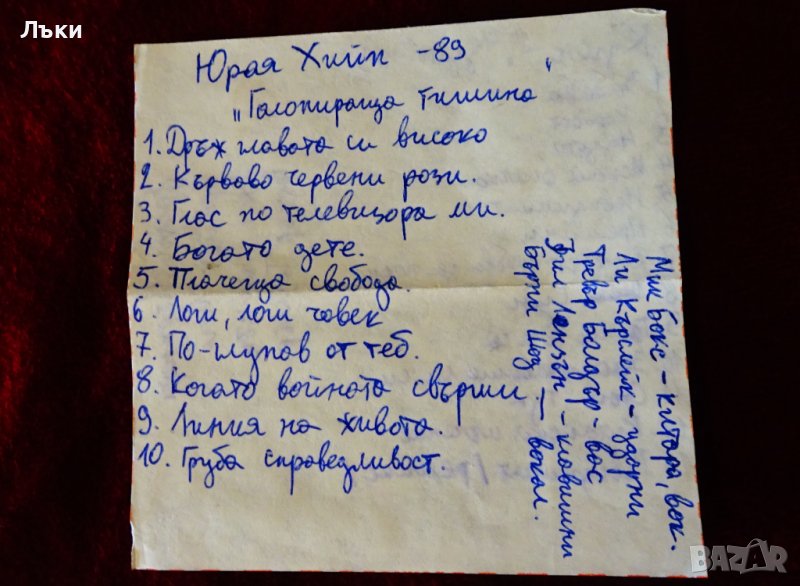 Лъки
Юрая Хийп - 89
„Галопираща тишина"
1. Дръж главата си високо
2. Кърваво червени рози.
3. Глас по телевизора ми.
4. Богато дете.
5. Плачеща свобода.
6. Лош, лош човек
7. По-глупав от теб.
8. Когато войната свърши.
9. Линия на живота.
10. Груба справедливост.
Мик Бокс - китара, вок.
Ли Кърслейк - ударни
Тревър Болдър - бас
Фил Ланзън - клавишни
Бърни Шоу - вокал.
BAZAR